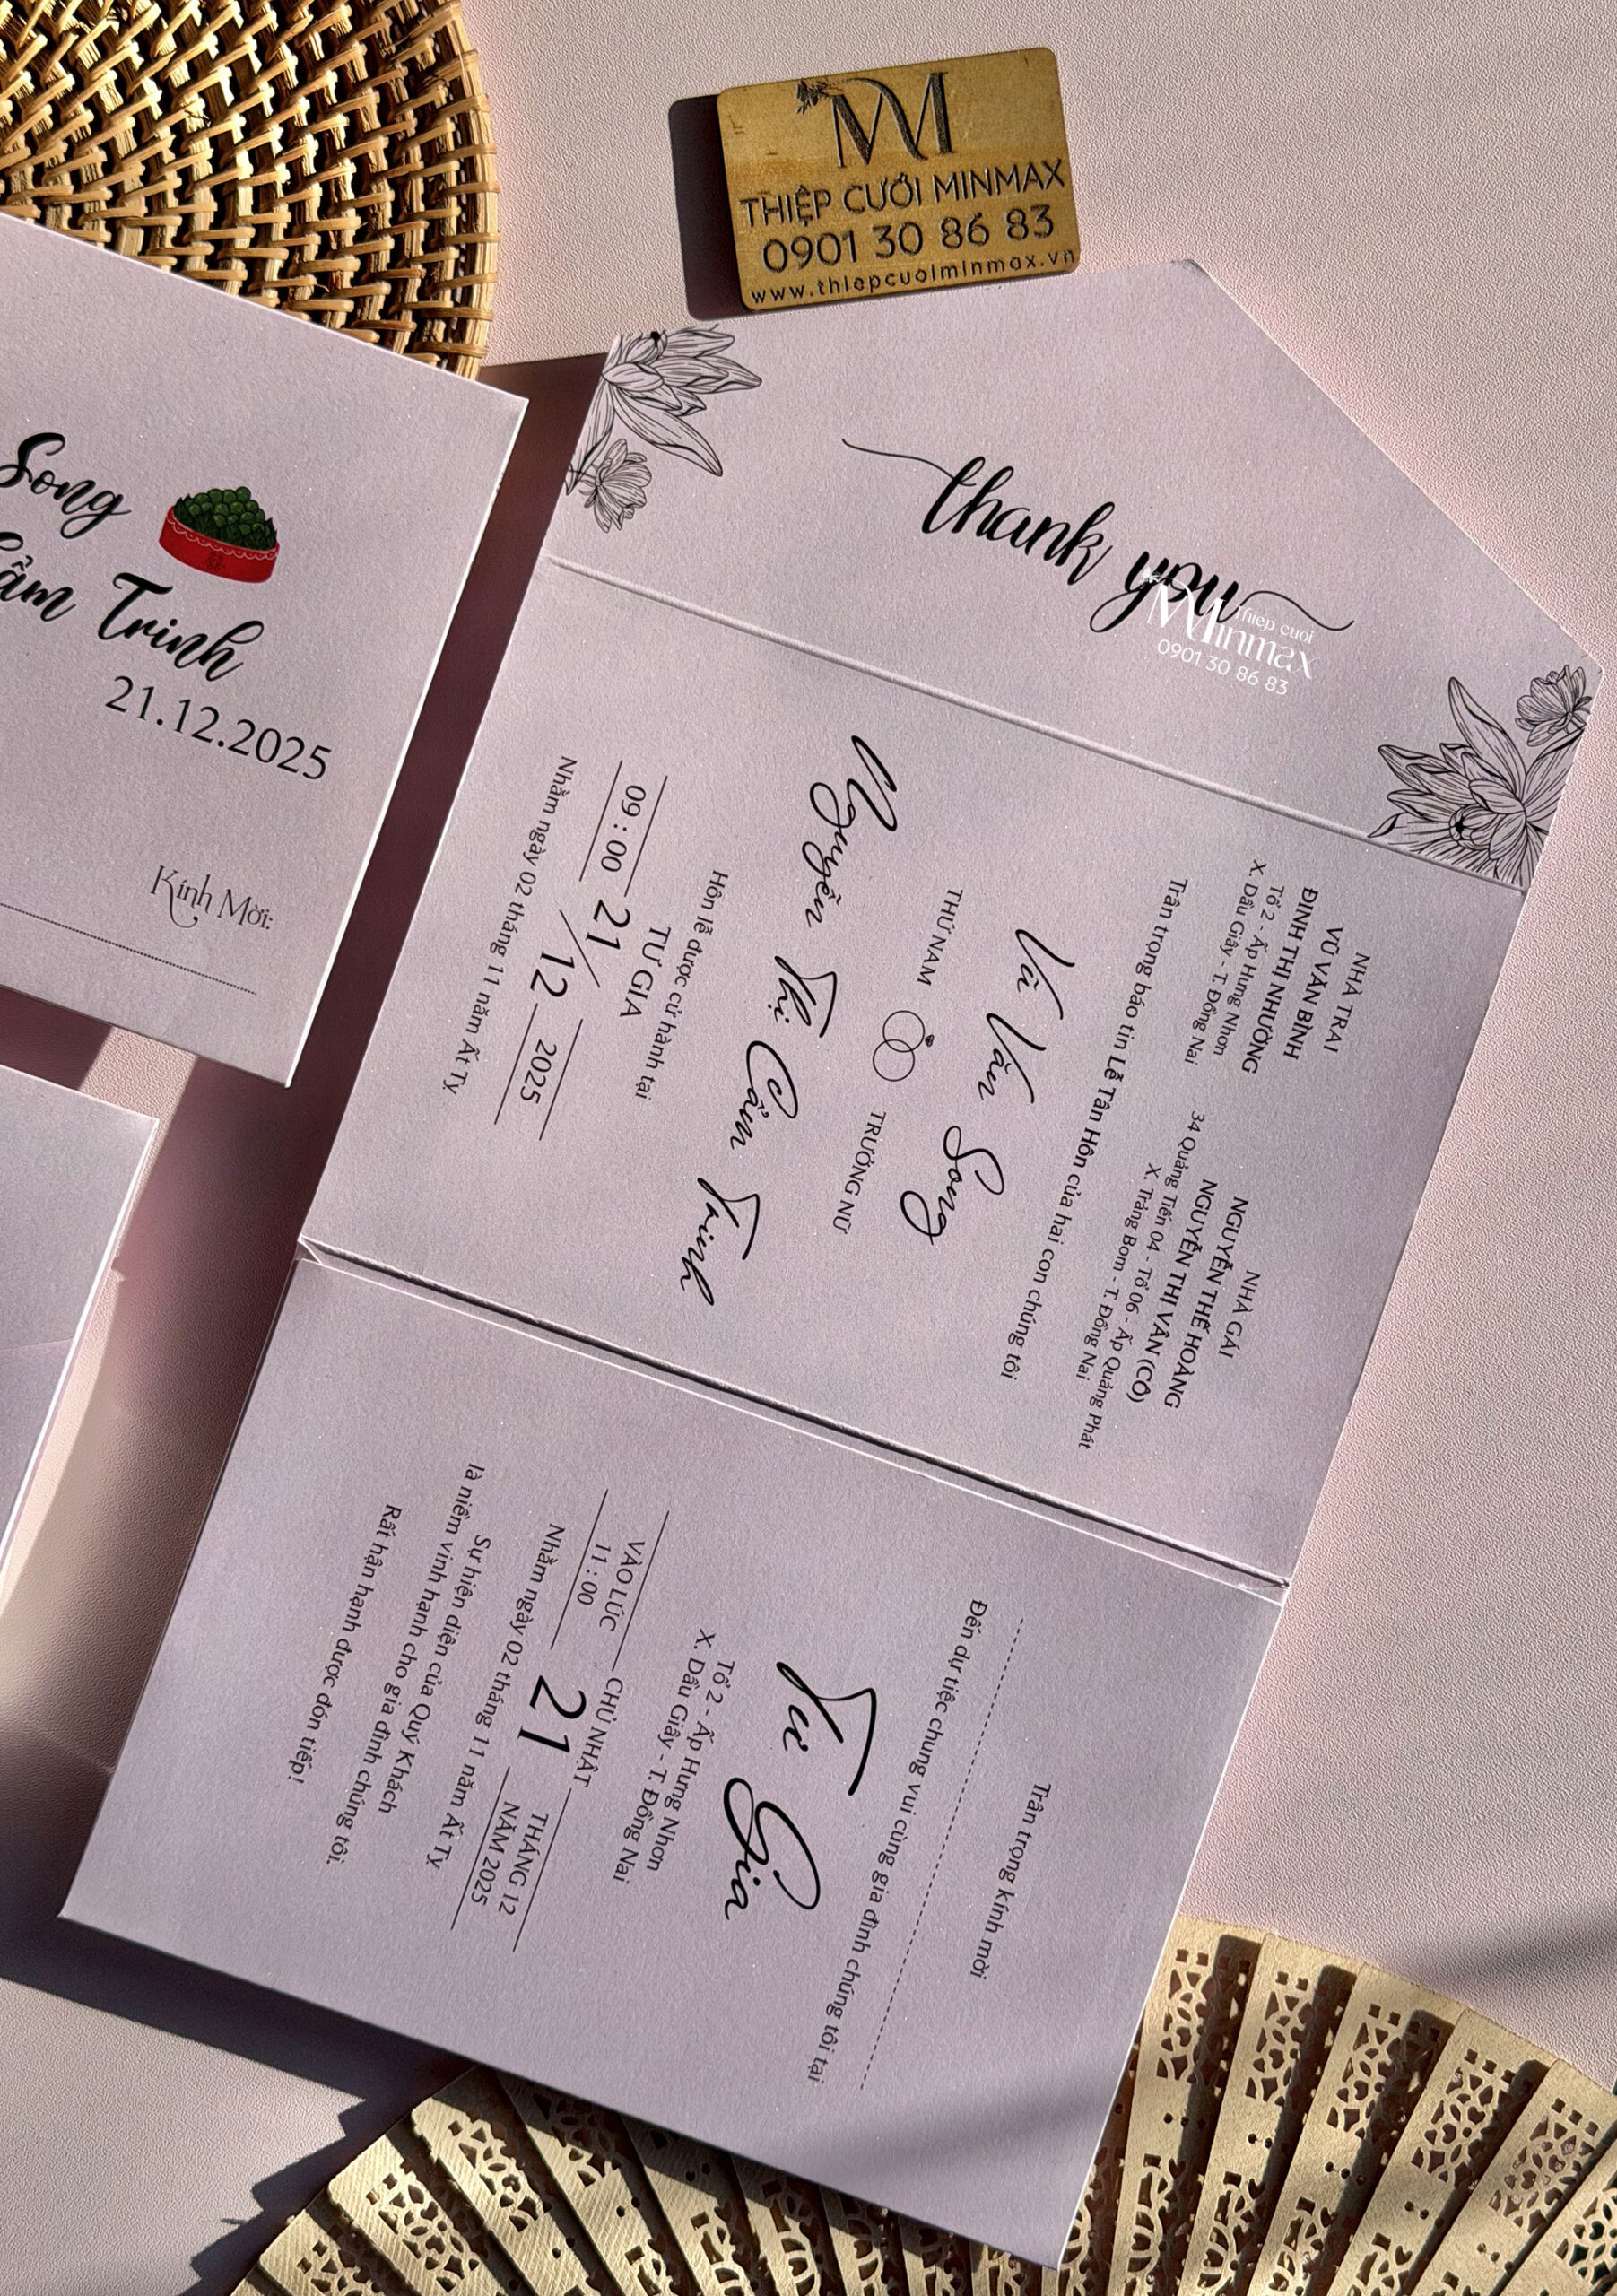 THIỆP CƯỚI MINMAX
0901 30 86 83
www.thiepcuoiminmax.vn
Song
Cẩm Trinh
21.12.2025
Kính Mời:
thank you
Thiep cuoi
Minmax
0901 30 86 83
NHÀ TRAI
VŨ VĂN BÌNH
ĐINH THỊ NHƯỜNG
Tổ 2 - Ấp Hưng Nhơn
X. Dầu Giây - T. Đồng Nai
NHÀ GÁI
NGUYỄN THẾ HOÀNG
NGUYỄN THỊ VÂN (CÔ)
34 Quảng Tiến 04 - Tổ 06 - Ấp Quảng Phát
X. Trảng Bom - T. Đồng Nai
Trân trọng báo tin Lễ Tân Hôn của hai con chúng tôi
Vũ Văn Song
THỨ NAM
TRƯỞNG NỮ
Nguyễn Thị Cẩm Trinh
Hôn lễ được cử hành tại
TƯ GIA
09 : 00 21 / 12 2025
Nhằm ngày 02 tháng 11 năm Ất Tỵ
Trân trọng kính mời
Đến dự tiệc chung vui cùng gia đình chúng tôi tại
Tư Gia
Tổ 2 - Ấp Hưng Nhơn
X. Dầu Giây - T. Đồng Nai
VÀO LÚC
11 : 00
CHỦ NHẬT
21
THÁNG 12
NĂM 2025
Nhằm ngày 02 tháng 11 năm Ất Tỵ
Sự hiện diện của Quý Khách
là niềm vinh hạnh cho gia đình chúng tôi.
Rất hận hạnh được đón tiếp!